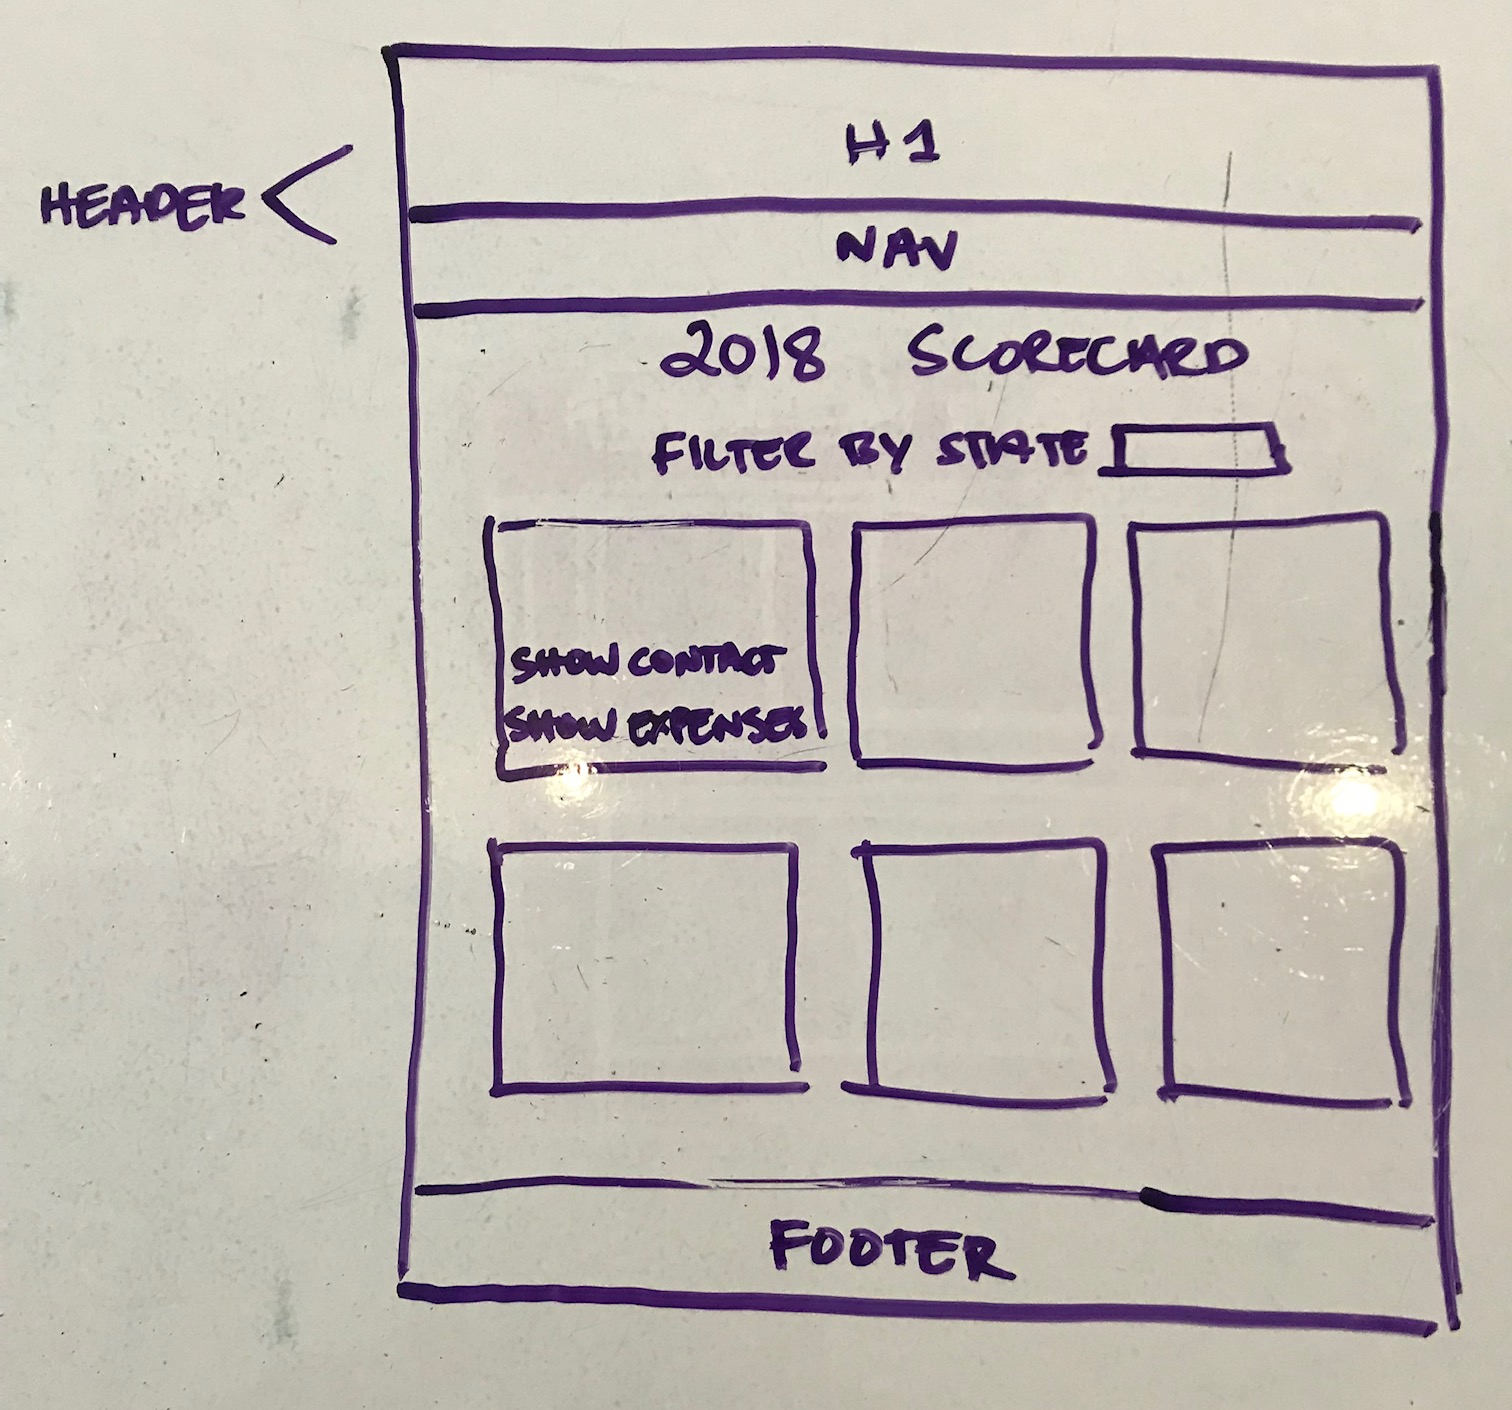 H1
HEADER
NAV
2018 SCORECARD
FILTER BY STATE
SHOW CONTACT
SHOW EXPENSES
FOOTER